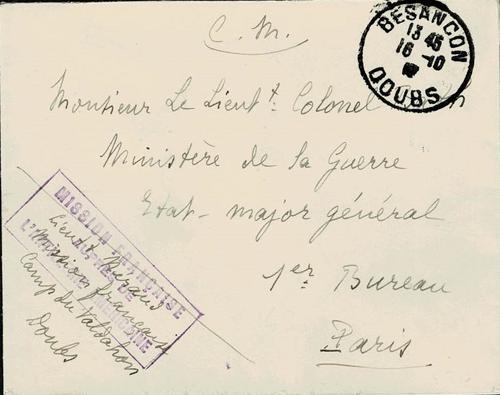 C. M.
BESANÇON
13 45
16 -10
DOUBS
Monsieur Le Lieutt. Colonel
Ministère de la Guerre
Etat-major général
1er Bureau
Paris
MISSION FRANÇAISE
AUPRÈS DE
L'ARMÉE AMÉRICAINE
Lieutt
Mission française
Camp du Valdahon
Doubs